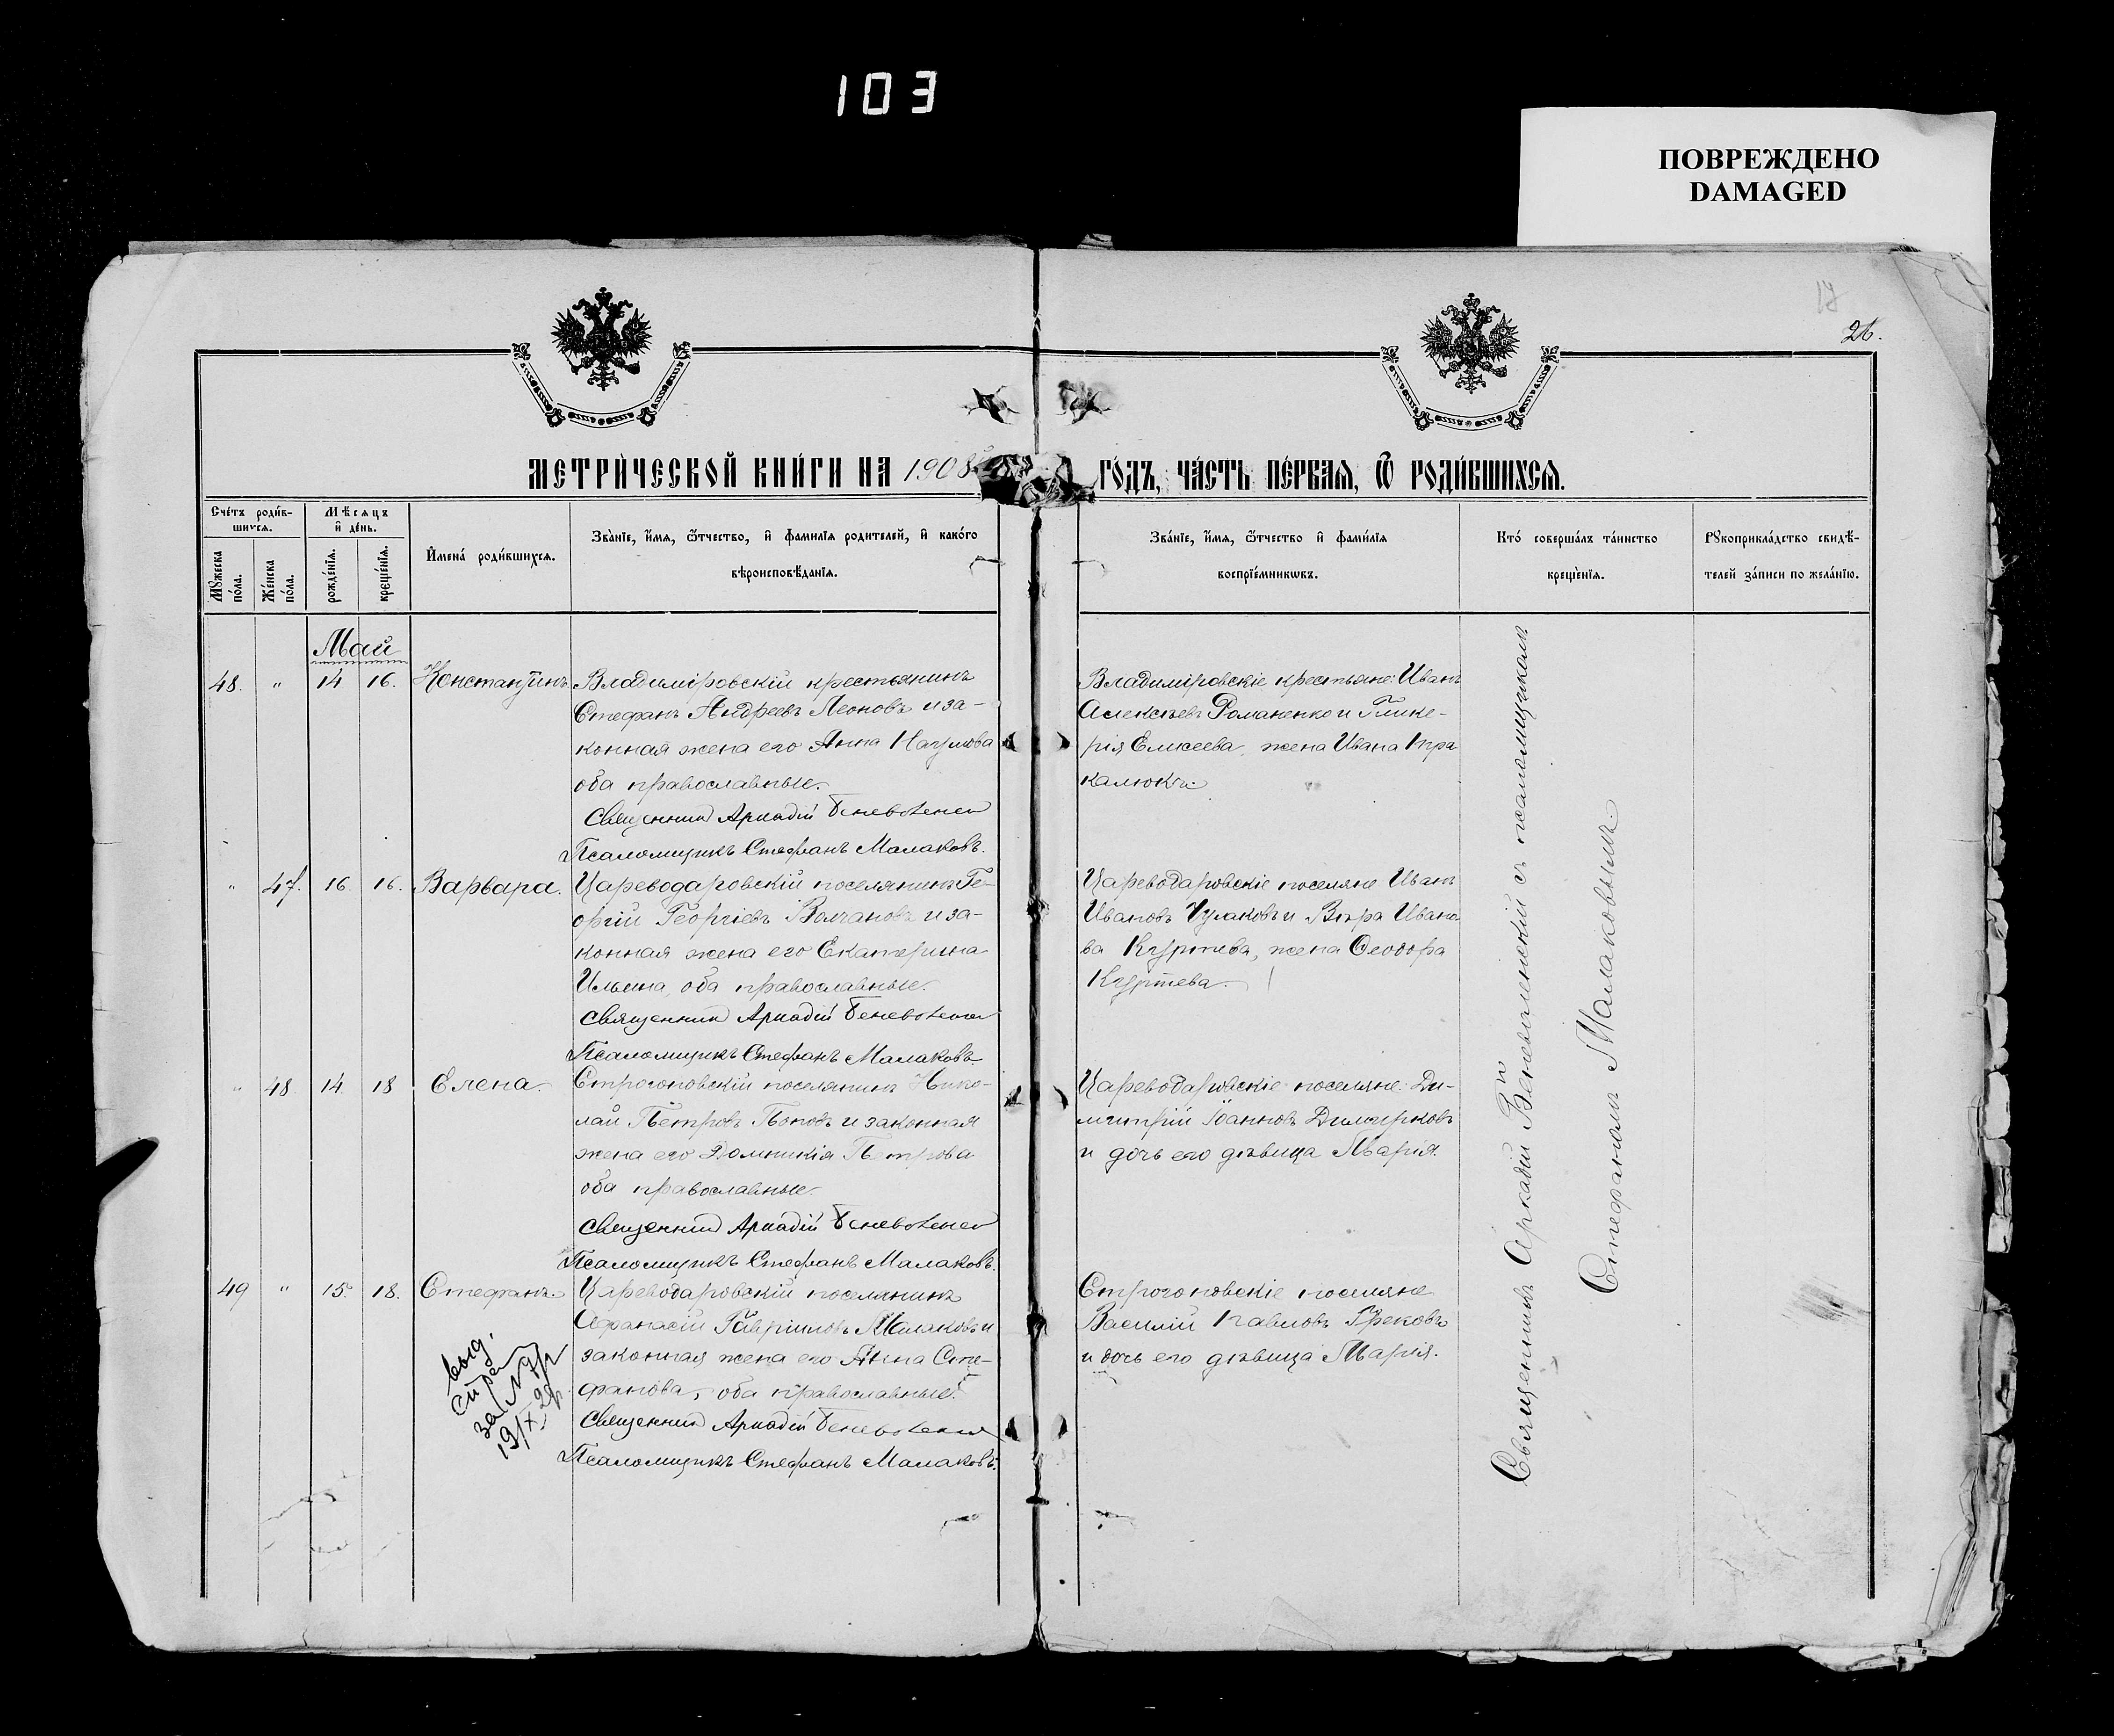 103
ПОВРЕЖДЕНО
DAMAGED
26.
МЕТРИ́ЧЕСКОЙ КНИ́ГИ НА 1908
ГО́ДЪ, ЧА́СТЬ ПЕ́РВАЯ, Ѿ РОДИ́ВШИХСЯ.
Сче́тъ роди́в-
шихся.
Мѣсяцъ
и де́нь.
Мꙋжеска по́ла.
Же́нска по́ла.
рожде́нїя.
креще́нїя.
И҆мена̀ роди́вшихся.
Зва́нїе, и҆́мя, ѻ҆́тчество, и҆ фами́лїя роди́телей, и҆ како́го
вѣроисповѣ́данїя.
Зва́нїе, и҆́мя, ѻ҆́тчество и҆ фами́лїя
воспрїе́мникѡвъ.
Кто́ соверша́лъ та́инство
креще́нїя.
Рꙋкоприкла́дство свидѣ́-
телей за́писи по жела́нїю.
Май
48. " 14 16. Константинъ
Владиміровскій крестьянинъ
Стефанъ Андреевъ Леоновъ и за-
конная жена его Анна Наумова
оба православные.
Священник Аркадій
Псаломщикъ Стефанъ Малаковъ.
Владиміровскіе крестьяне: Иванъ
Алексѣевъ Романенко и Глике-
рія Елисеева, жена Ивана
" 47. 16. 16. Варвара.
Цареводаровскій поселянинъ Ге-
оргій Георгіевъ Волчановъ и за-
конная жена его Екатерина
Ильина, оба православные.
Священник Аркадій
Псаломщикъ Стефанъ Малаковъ.
Цареводаровскіе поселяне Иванъ
Ивановъ Чулаковъ и Вѣра Ивано-
ва Куртева, жена Ѳеодора
Куртева.
" 48. 14. 18 Елена.
Строгоновскій поселянинъ Нико-
лай Петровъ Поповъ и законная
жена его Домникія Петрова
оба православные.
Священник Аркадій
Псаломщикъ Стефанъ Малаковъ.
Цареводаровскіе поселяне: Ди-
митрій Іоанновъ Димчерковъ
и дочь его дѣвица Марія.
49 " 15. 18. Стефанъ.
Цареводаровскій поселянинъ
Аѳанасій Гавріиловъ Малаковъ и
законная жена его Анна Сте-
фанова, оба православные.
Священник Аркадій
Псаломщикъ Стефанъ Малаковъ.
Строгоновскіе поселяне
Василій Павловъ Грековъ
и дочь его дѣвица Марія.
выд.
за №
Священникъ Аркадій съ псаломщикомъ
Стефаномъ Малаковымъ.